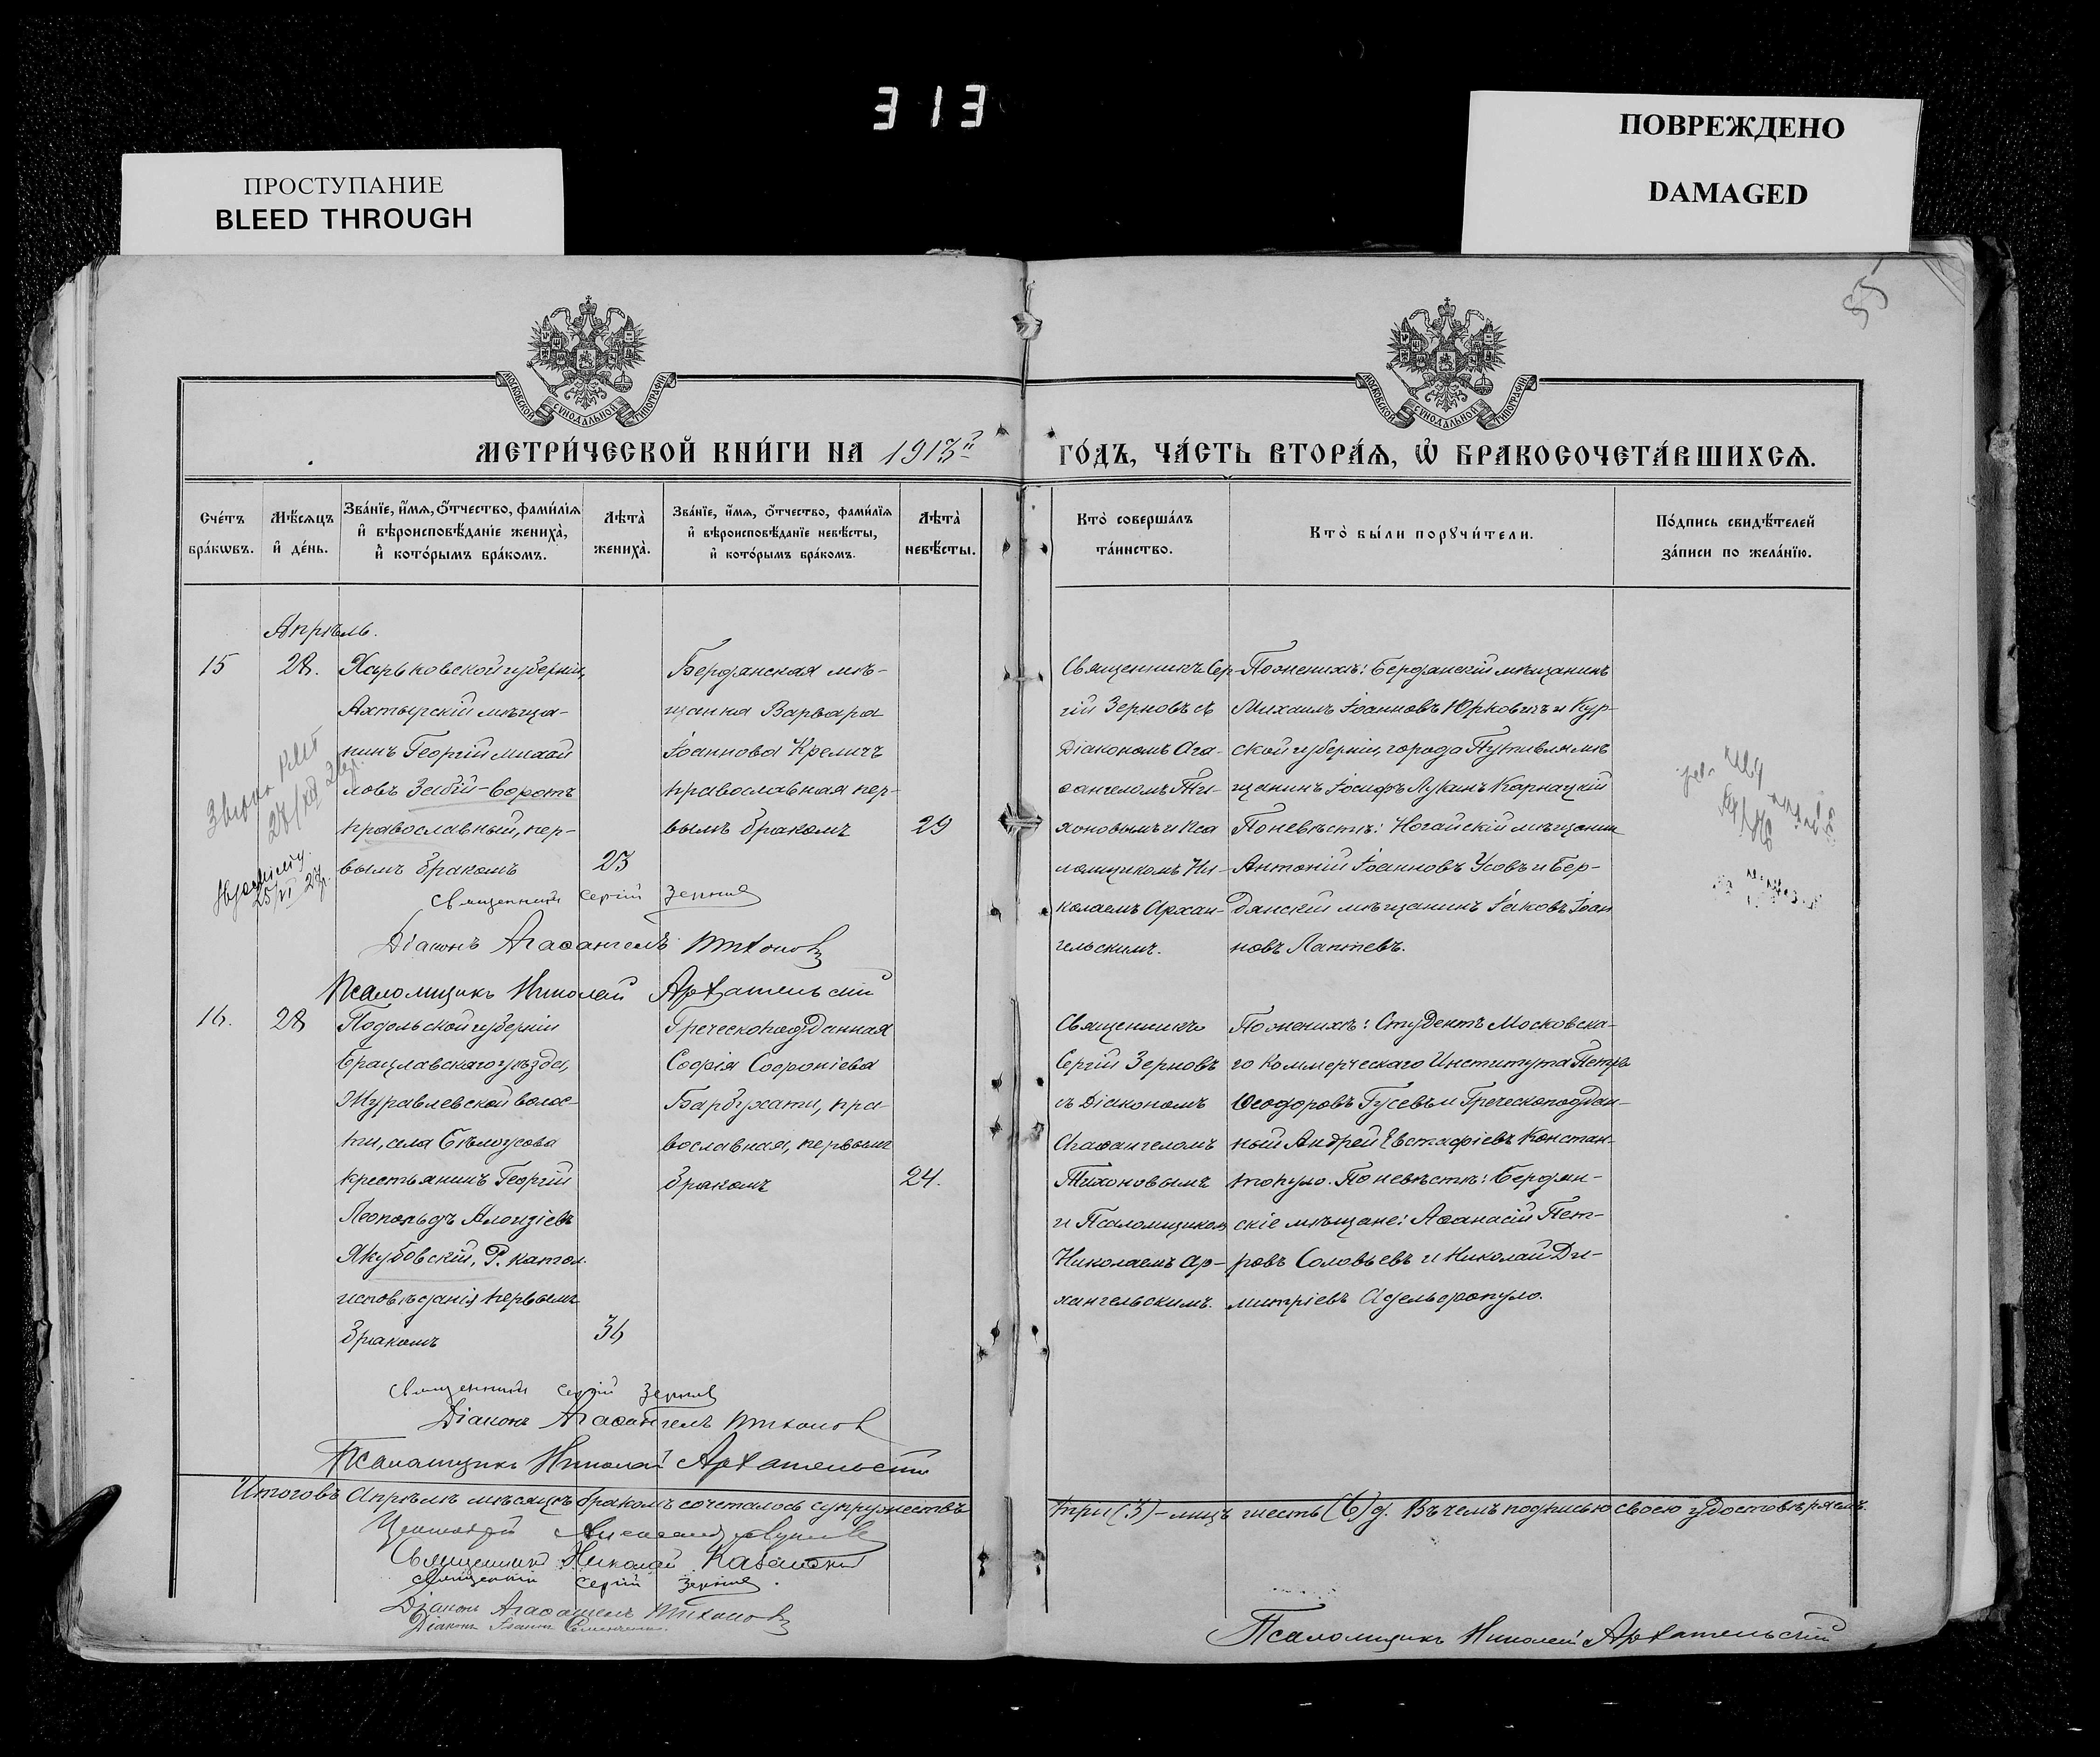 313
ПРОСТУПАНИЕ
BLEED THROUGH
ПОВРЕЖДЕНО
DAMAGED
55
МОСКОВСКОЙ СѴНОДАЛЬНОЙ ТИПОГРАФІИ
МОСКОВСКОЙ СѴНОДАЛЬНОЙ ТИПОГРАФІИ
МЕТРИ́ЧЕСКОЙ КНИ́ГИ НА 1913й
ГО́ДЪ, ЧА́СТЬ ВТОРА́Ѧ, Ѡ҆ БРАКОСОЧЕТА́ВШИХСѦ.
Сче́тъ бра́кѡвъ.
Мѣ́сѧцъ и҆ де́нь.
Зва́нїе, и҆́мѧ, ѻ҆́тчество, фами́лїѧ и҆ вѣроисповѣ́данїе жениха̀, и҆ кото́рымъ бра́комъ.
Лѣта̀ жениха̀.
Зва́нїе, и҆́мѧ, ѻ҆́тчество, фами́лїѧ и҆ вѣроисповѣ́данїе невѣ́сты, и҆ кото́рымъ бра́комъ.
Лѣта̀ невѣ́сты.
Кто̀ соверша́лъ та́инство.
Кто̀ бы́ли порꙋчи́тели.
По́дпись свидѣ́телей за́писи по жела́нїю.
Апрѣль.
15
28.
Харьковской губерніи,
Ахтырскій мѣща-
нинъ Георгій Михай
ловъ Забій-Воротъ
православный, пер-
вымъ бракомъ
23
Бердянская мѣ-
щанка Варвара
Іоаннова Кремичъ
православная пер-
вымъ бракомъ
29
Священникъ Сер-
гій Зерновъ съ
Діакономъ Ага-
ѳангеломъ Ти-
хоновымъ и Пса
ломщикомъ Ни-
колаемъ Архан-
гельскимъ.
По женихѣ: Бердянскій мѣщанинъ
Михаилъ Іоанновъ Юрковичъ и Кур-
ской губерніи, города Путивля мѣ
щанинъ Іосифъ Лукинъ Карнацкій
По невѣстѣ: Ногайскій мѣщанин
Антоній Іоанновъ Усовъ и Бер-
дянскій мѣщанинъ Іаковъ Іоан
новъ Лаптевъ.
Священникъ Сергій Зерновъ
Діаконъ Агаѳангелъ Тихоновъ
Псаломщикъ Николай Архангельскій
16.
28
Подольской губерніи
Брацлавскаго уѣзда,
Журавлевской волос-
ти, села Бѣлоусова
крестьянинъ Георгій
Леопольдъ Алоизіевъ
Якубовскій, Р. катол.
исповѣданія первымъ
бракомъ
36
Греческоподданная
Софія Софроніева
Барбухати, пра-
вославная, первымъ
бракомъ
24.
Священникъ
Сергій Зерновъ
съ Діакономъ
Агаѳангеломъ
Тихоновымъ
и Псаломщиком
Николаемъ Ар-
хангельскимъ.
По женихѣ: Студентъ Московска-
го Коммерческаго Института Петръ
Ѳеодоровъ Гусевъ и Греческоподдан-
ный Андрей Евстафіевъ Констан-
топуло. По невѣстѣ: Бердян-
скіе мѣщане: Аѳанасій Пет-
ровъ Соловьевъ и Николай Ди-
митріевъ Адельфопуло.
Священникъ Сергій Зерновъ
Діаконъ Агаѳангелъ Тихоновъ
Псаломщикъ Николай Архангельскій
Итого въ Апрѣлѣ мѣсяцѣ бракомъ сочеталось супружествъ
три (3) - лицъ шесть (6) д. Въ чемъ подписью своею удостовѣряемъ.
Священникъ Николай
Священникъ Сергій Зерновъ.
Діаконъ Агаѳангелъ Тихоновъ
Діаконъ Іоаннъ
Псаломщикъ Николай Архангельскій